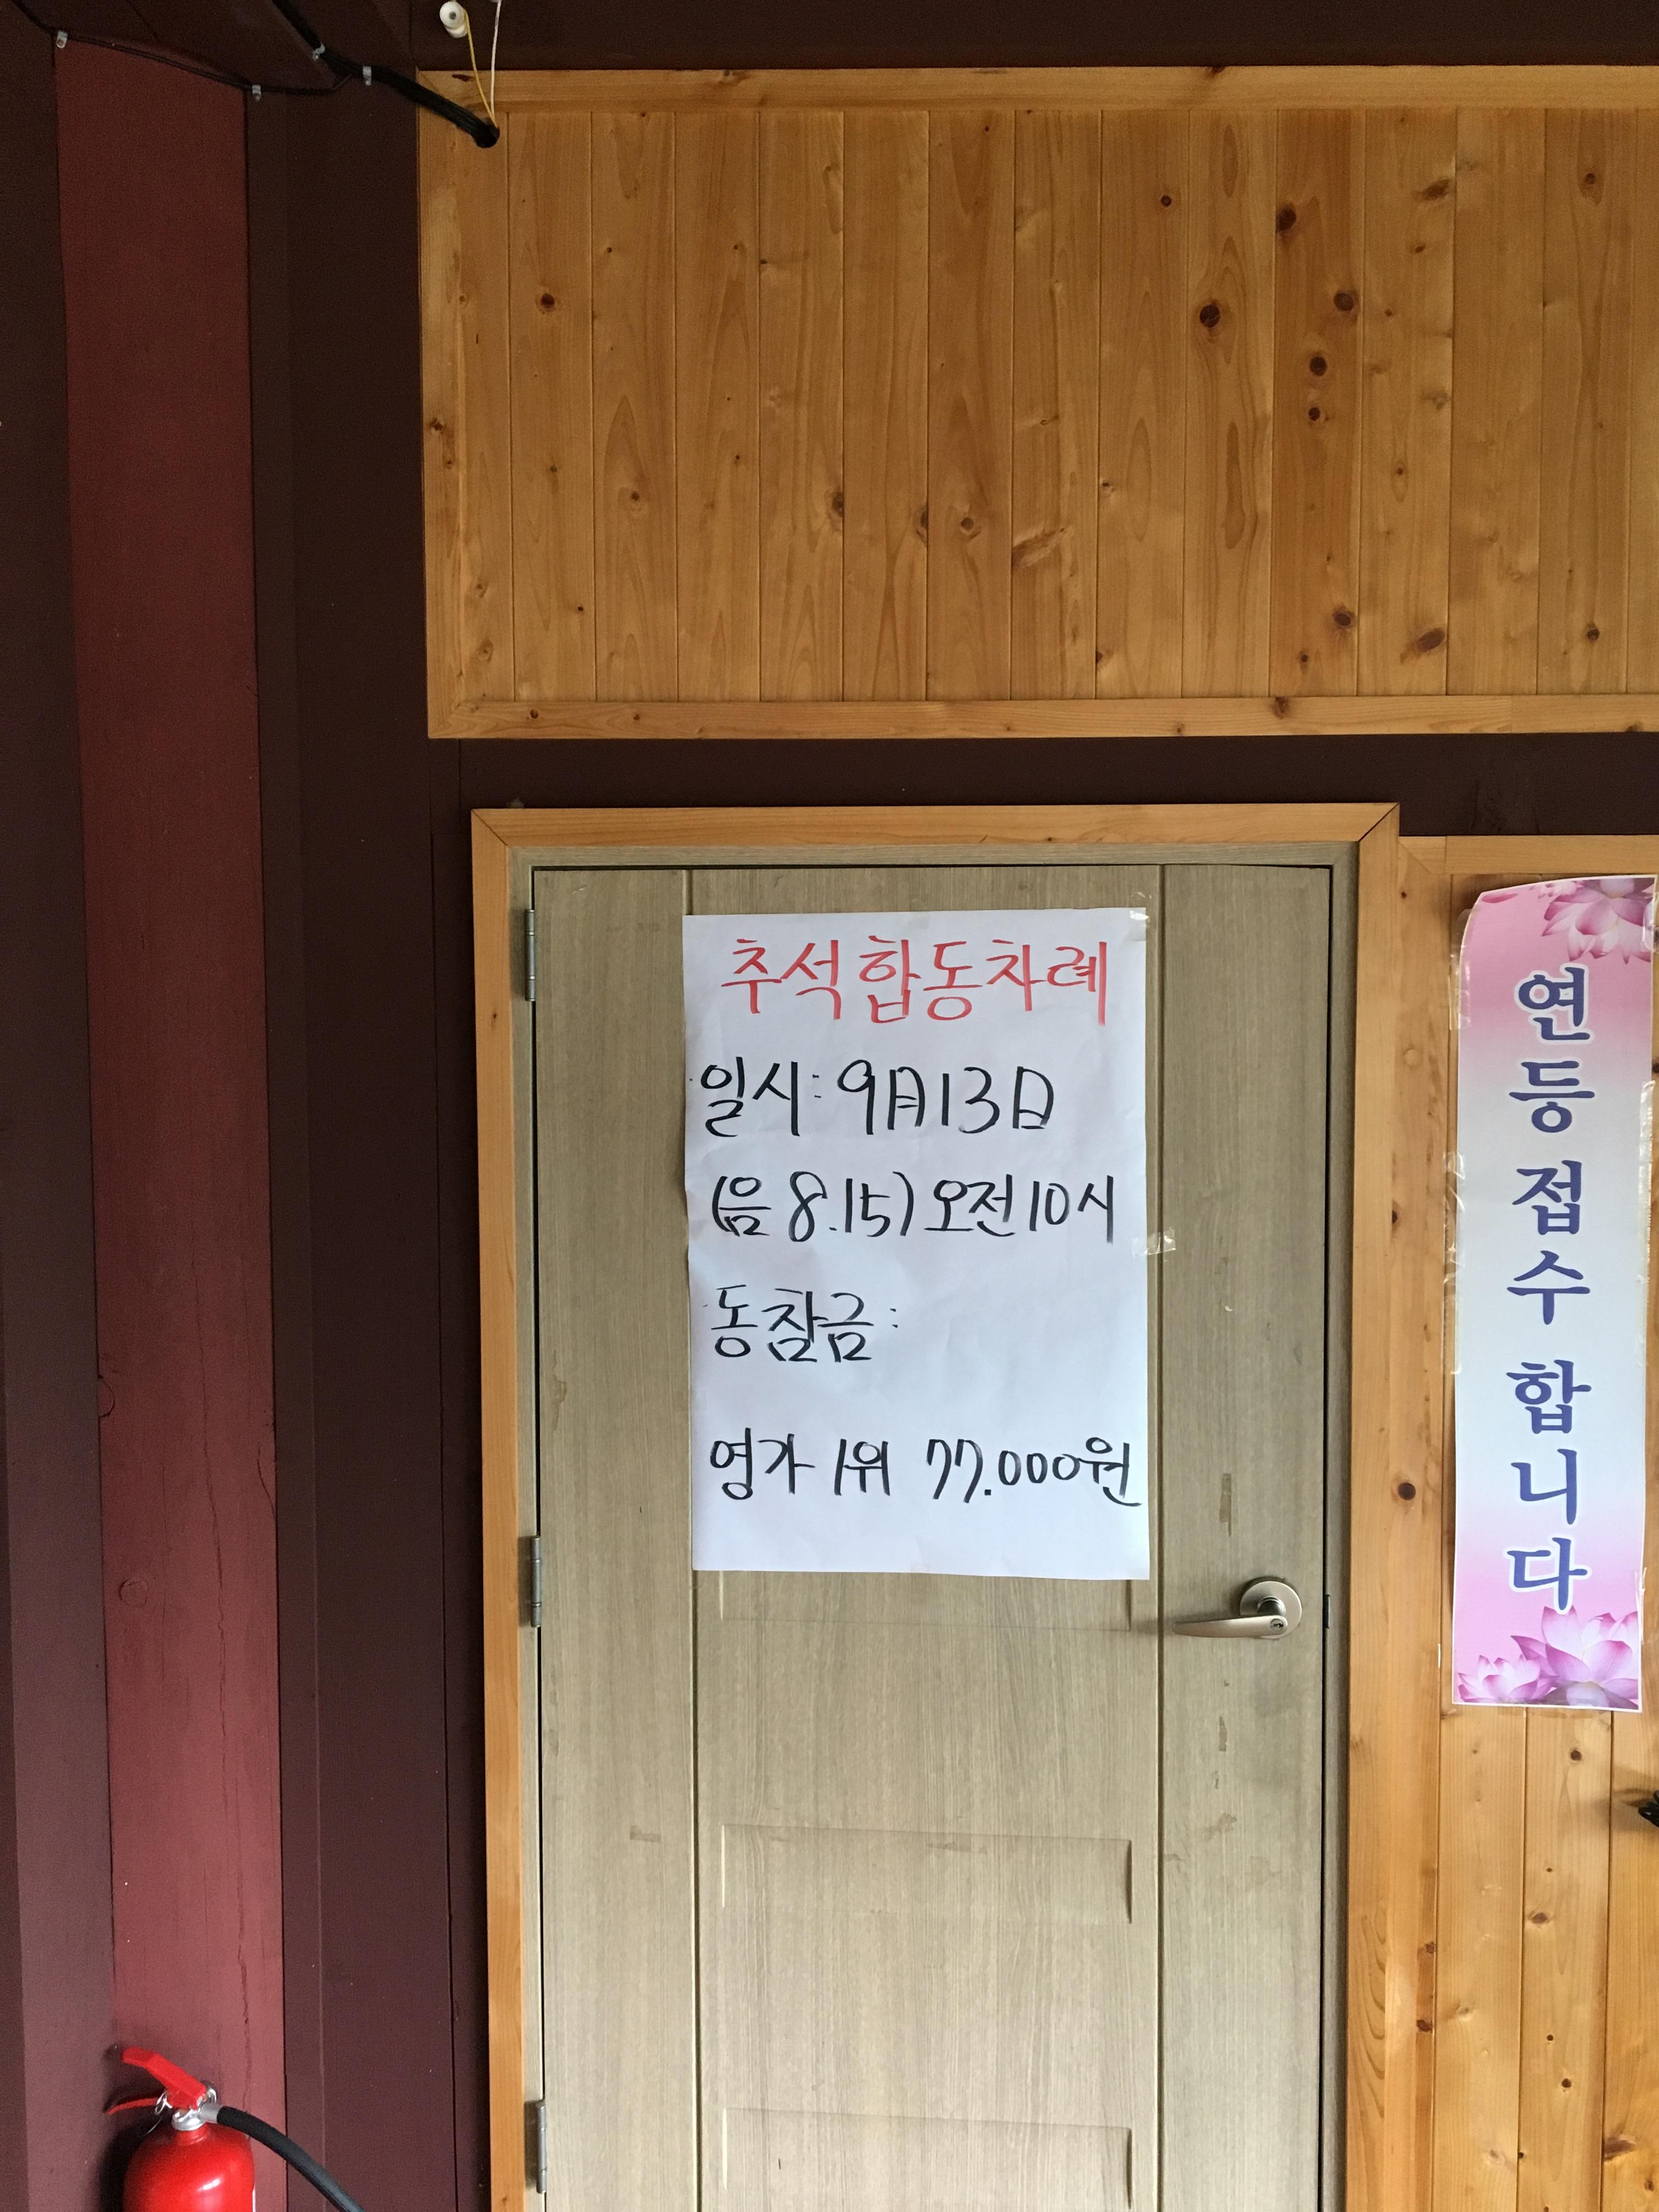 추석합동차례
일시: 9月13日
(음 8.15) 오전10시
동참금:
영가 1위 77.000원
연등접수합니다